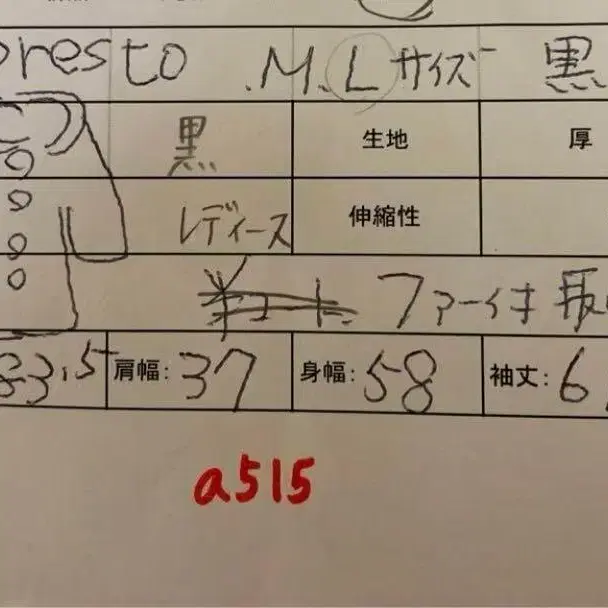 presto .M.L サイズ 黒
黒 生地 厚
レディース 伸縮性
ファー付き
83.5 肩幅: 37 身幅: 58 袖丈: 6
a515